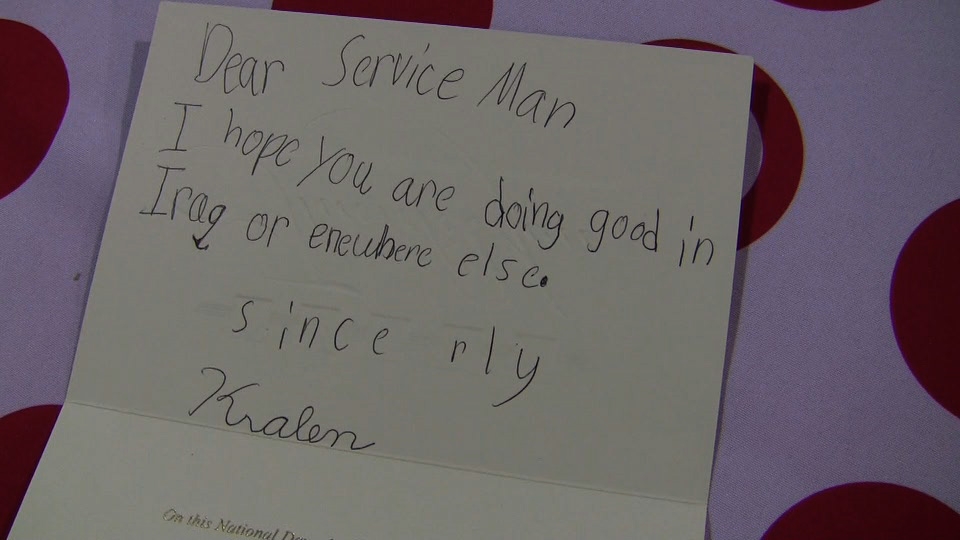 Dear Service Man
I hope you are doing good in
Iraq or enewhere else.
since rly
Kralen
On this National